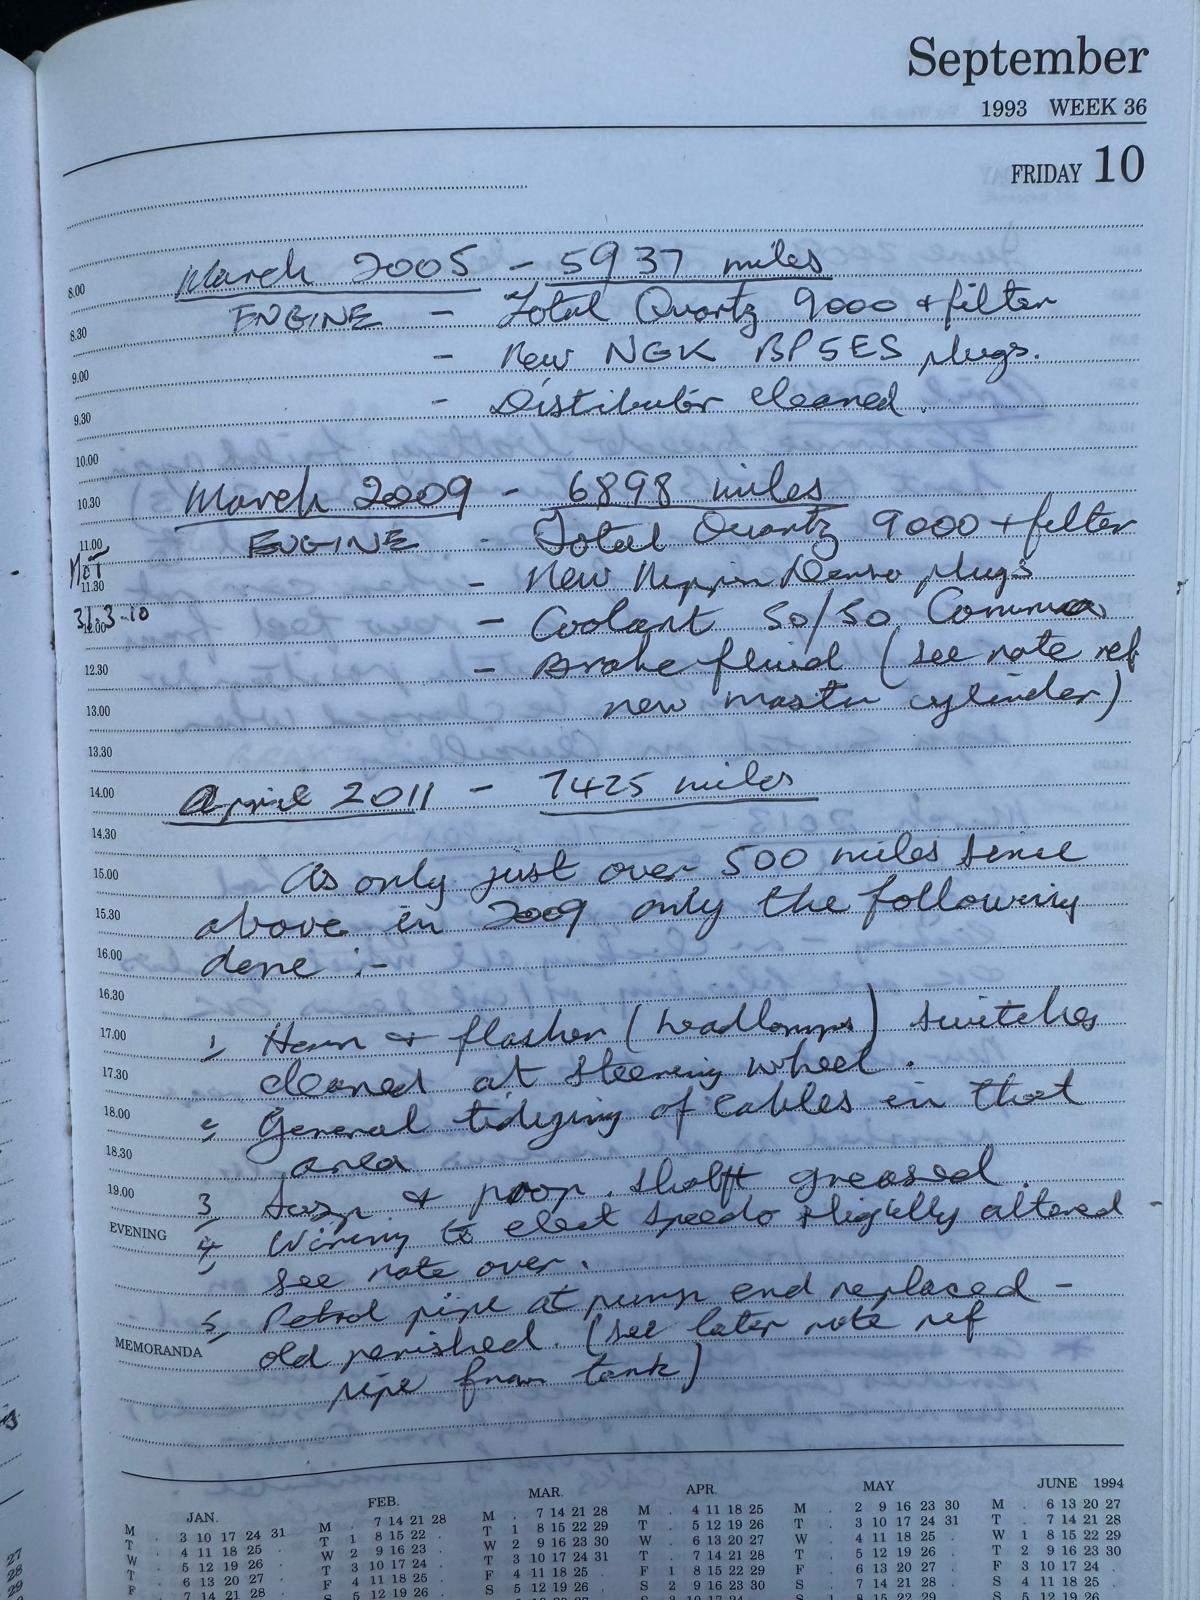 September
1993 WEEK 36
FRIDAY 10
March 2005 - 5937 miles
8.00
ENGINE - Total Quartz 9000 + filter
8.30
- New NGK BP5ES plugs.
9.00
- Distributor cleaned.
9.30
10.00
March 2009 - 6898 miles
10.30
ENGINE - Total Quartz 9000 + filter
11.00
MOT
- New Nippon Denso plugs
11.30
31.3-10
- Coolant 50/50 Comma
12.00
- Brake fluid (see note ref
12.30
new master cylinder)
13.00
13.30
April 2011 - 7425 miles
14.00
14.30
As only just over 500 miles since
15.00
above in 2009 only the following
15.30
done :-
16.00
16.30
1, Horn & flasher (headlamps) switches
17.00
cleaned at steering wheel.
17.30
2, General tidying of cables in that
18.00
area
18.30
3, Susp & prop. shaft greased.
19.00
4, Wiring to elect speedo slightly altered -
EVENING
see note over.
5, Petrol pipe at pump end replaced -
old perished. (see later note ref
MEMORANDA
pipe from tank)
JAN. FEB. MAR. APR. MAY JUNE 1994
M . 3 10 17 24 31 M . 7 14 21 28 M . 7 14 21 28 M . 4 11 18 25 M . 2 9 16 23 30 M . 6 13 20 27
T . 4 11 18 25 . T 1 8 15 22 . T 1 8 15 22 29 T . 5 12 19 26 T . 3 10 17 24 31 T . 7 14 21 28
W . 5 12 19 26 . W 2 9 16 23 . W 2 9 16 23 30 W . 6 13 20 27 W . 4 11 18 25 . W 1 8 15 22 29
T . 6 13 20 27 . T 3 10 17 24 . T 3 10 17 24 31 T . 7 14 21 28 T . 5 12 19 26 . T 2 9 16 23 30
F . 7 14 21 28 . F 4 11 18 25 . F 4 11 18 25 . F 1 8 15 22 29 F . 6 13 20 27 . F 3 10 17 24 .
S 5 12 19 26 . S 5 12 19 26 . S 2 9 16 23 30 S . 7 14 21 28 . S 4 11 18 25 .